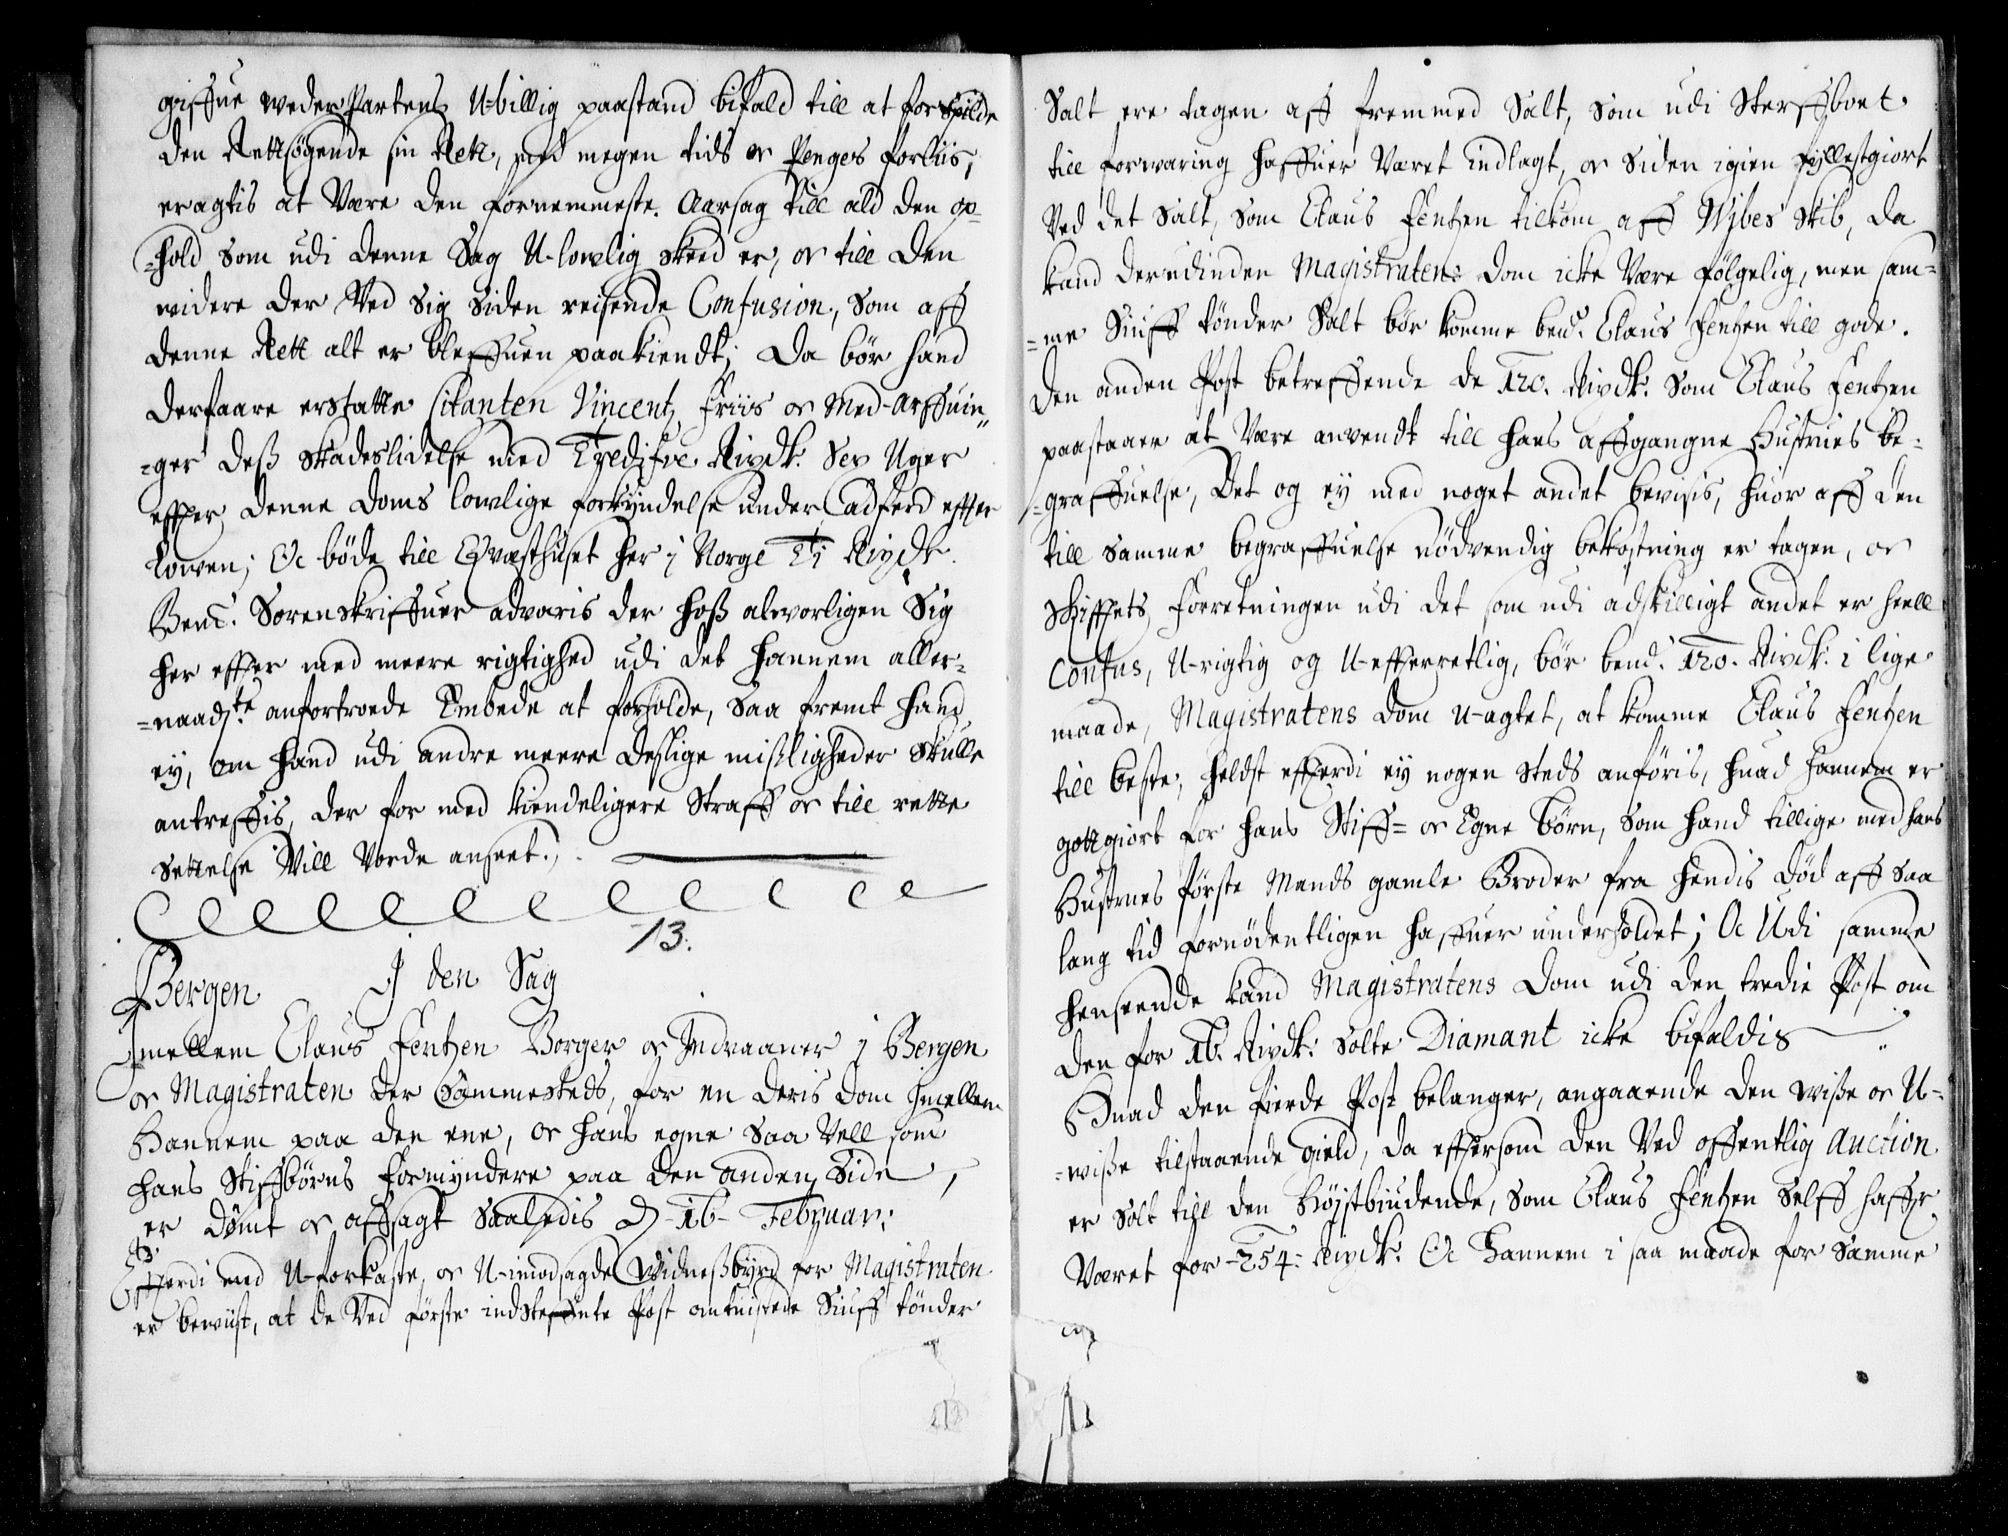 giffue weder Partens U-billig paastand bifald till at forspilde
den Rettsøgende sin Rett, med megen tids oc Penges forliis,
eragtis at Være den fornemmeste Aarsag till ald den op-
-hold som udi denne Sag U-lowlig skeed er, oc till den
widere der Ved Sig Siden reisende Confusion, som aff
denne Rett alt er bleffuen paakiendt; Da bør hand
derfaare erstatte Citanten Vincentz Friis oc Med-Arffuin-
-ger deß skadeslidelse med Tredifve Rixdlr. Sex Uger
effter denne doms lowlige forkyndelse under adferd effter
Lowen; Oc bøde till Qvæsthuset her i Norge Ti Rixdlr.
Bemt. Sorenskriffuer advaris der hoß alvorligen Sig
her effter med meere rigtighed udi det hannem aller-
-naadste anfortroede Embede at forholde, saa fremt hand
ey, om hand udi andre meere deslige mißligheder skulle
antreffis, der for med kiendeligere Straff oc till rette
settelse Vill Vorde anseet.
13.
Bergen I den Sag
Imellem Claus Fentzen Borger oc Indvaaner i Bergen
oc Magistraten der Sammesteds, for en deris dom Imellem
Hannem paa den ene, oc hans egne Saa Vell som
hans Stiffbørns Formyndere paa den anden Side,
er Dømt oc affsagt Saaledis D. 16 Februar:
Efterdi med U-forkaste, oc U-imodsagde Widnesbyrd for Magistraten
er beviist, at de Ved første indsteffnte Post omtuistede Siuff tønder
Salt ere tagen aff fremmed Salt, som udi Sterffboet
till forwaring haffuer Været indlagt, oc siden igien fyllestgiort
Ved det Salt, som Claus Fentzen tilkom aff Wibes Skib, da
kand derudinden Magistratens dom icke Være følgelig, men sam-
-me Siuff tønder Salt bør komme bemt. Claus Fentzen till gode.
Den anden Post betreffende de 120. Rixdlr. Som Claus Fentzen
paastaaer at Være anvendt till hans affgangne Hustrues be-
-graffuelse, Det og ey med noget andet bevisis, huor aff den
till samme begraffuelse nødvendig bekostning er tagen, oc
Schifftets Forretningen udi det som udi adskilligt andet er heell
Confus, U-rigtig og U-efferretlig, bør bemt. 120. Rixdlr. i lige
maade, Magistratens Dom U-agtet, at komme Claus Fentzen
till beste, heldst efferdi ey nogen Steds anføris, huad hannem er
gottgiort for hans Stiff- oc Egne Børn, som hand tillige med hans
Hustrues første Mands gamle Broder fra hendis død aff saa
lang tid fornødentligen haffuer underholdet; Oc Udi samme
henseende kand Magistratens Dom udi den tredie Post om
den for 16. Rixdlr. solte Diamant icke bifaldis
Huad den fierde Post belanger, angaaende den wiße oc U-
-wiße tilstaaende gield, da effersom den Ved offentlig Auction
er solt till den Høystbiudende, som Claus Fentzen Selff haffr
Været for 254. Rixdlr. Oc Hannem i saa maade for Samme